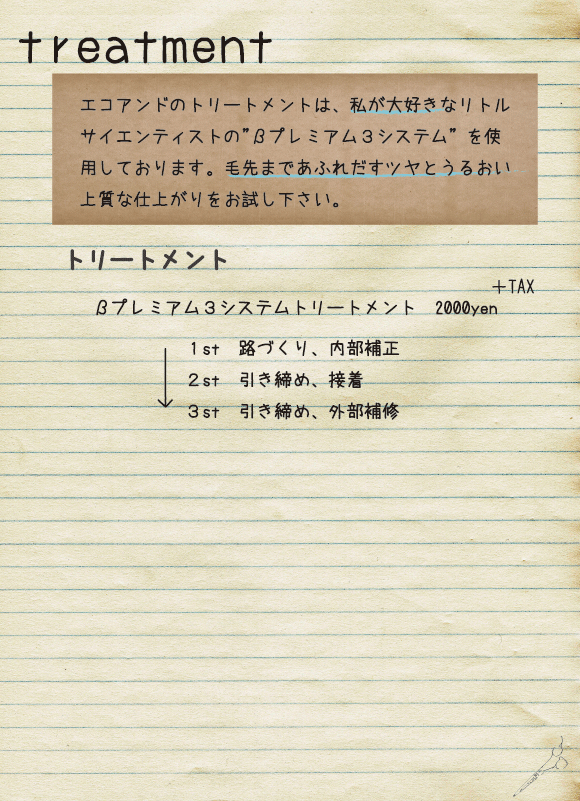 treatment
エコアンドのトリートメントは、私が大好きなリトル
サイエンティストの"βプレミアム３システム" を使
用しております。毛先まであふれだすツヤとうるおい
上質な仕上がりをお試し下さい。
トリートメント
＋TAX
βプレミアム３システムトリートメント　2000yen
１st　路づくり、内部補正
２st　引き締め、接着
３st　引き締め、外部補修